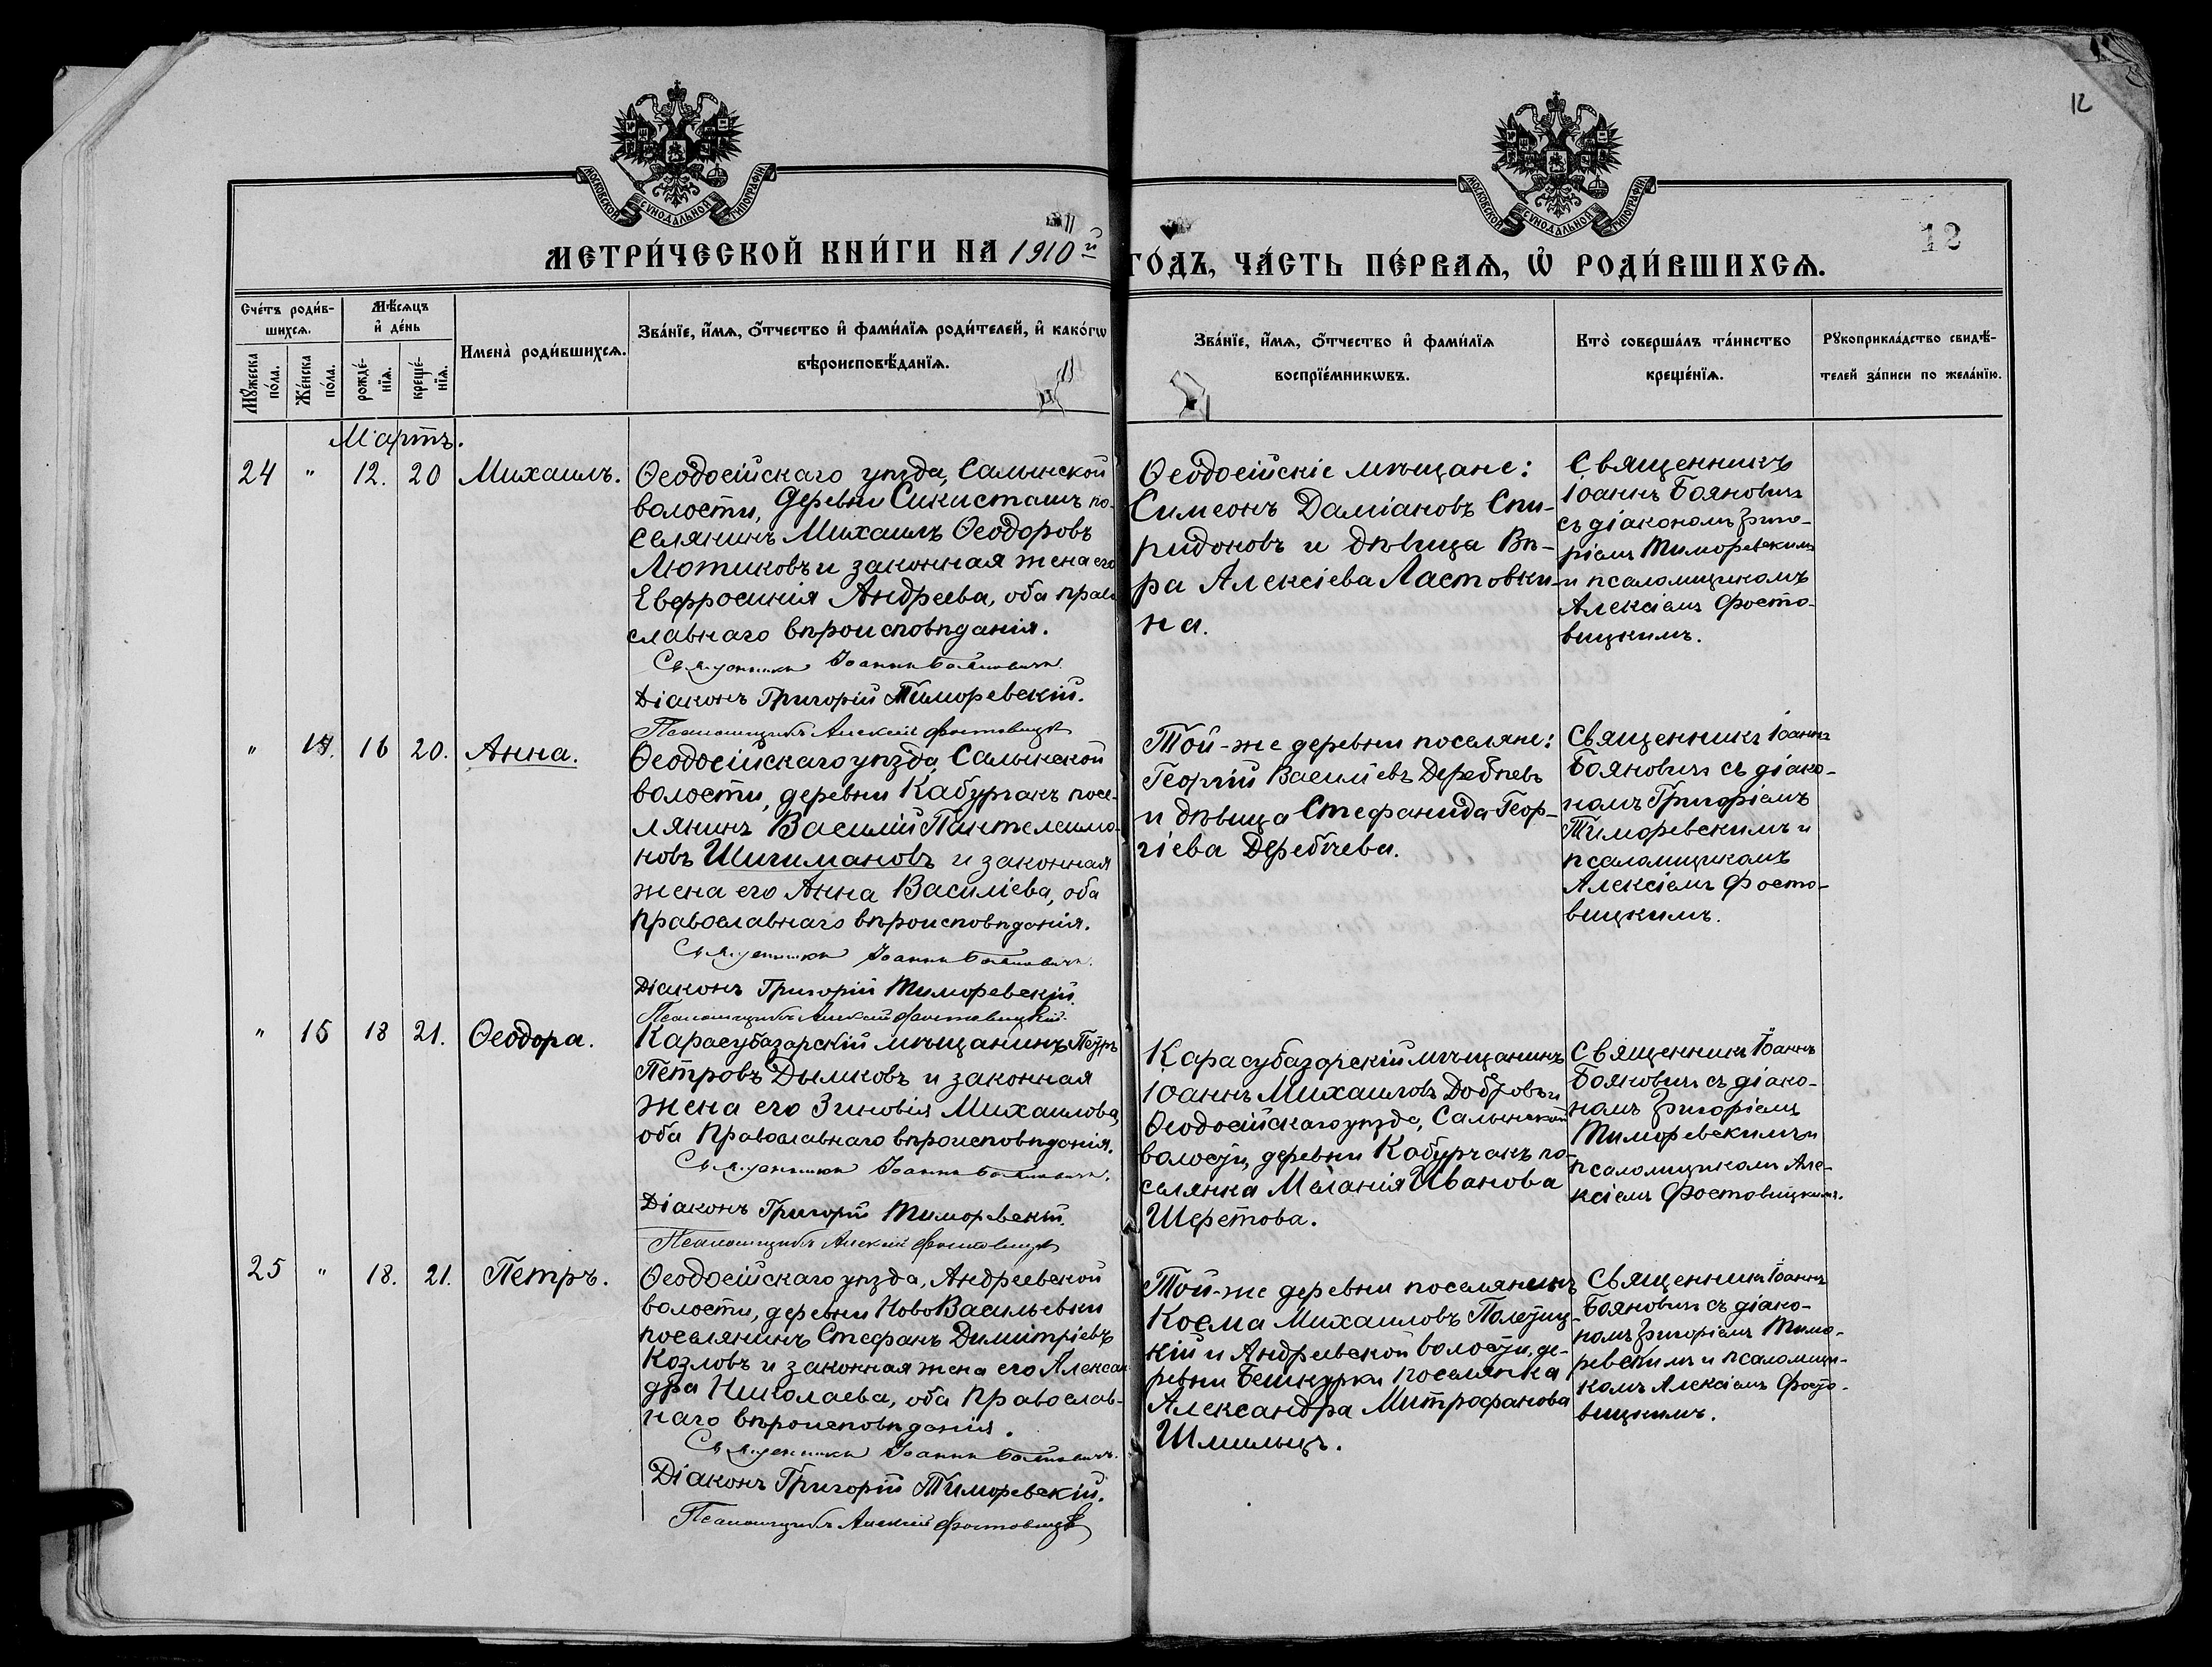 12
МОСКОВСКОЙ СѴНОДАЛЬНОЙ ТИПОГРАФІИ
МОСКОВСКОЙ СѴНОДАЛЬНОЙ ТИПОГРАФІИ
12
МЕТРИ́ЧЕСКОЙ КНИ́ГИ НА 1910й
ГО́ДЪ, ЧА́СТЬ ПЕ́РВАѦ, Ѡ҆ РОДИ́ВШИХСѦ.
Сче́тъ роди́в-
шихсѧ.
Мꙋ́жеска по́ла.
Же́нска по́ла.
Мѣ́сѧцъ
и҆ де́нь
рожде́-нїѧ.
креще́-нїѧ.
Имена̀ роди́вшихсѧ.
Зва́нїе, и҆́мѧ, о҆́тчество и҆ фами́лїѧ роди́телей, и҆ како́гѡ
вѣроисповѣ́данїѧ.
Зва́нїе, и҆́мѧ, о҆́тчество и҆ фами́лїѧ
воспрїе́мникѡвъ.
Кто̀ соверша́лъ та́инство
креще́нїѧ.
Рꙋкоприкла́дство свидѣ́-
телей за́писи по жела́нїю.
Мартъ.
24 " 12. 20 Михаилъ.
Ѳеодосійскаго уѣзда, Салынской
волости, деревни Сикисташъ по-
селянинъ Михаилъ Ѳеодоровъ
Лютиковъ и законная жена его
Евфросинія Андреева, оба право-
славнаго вѣроисповѣданія.
Священникъ Іоаннъ Бояновичъ.
Діаконъ Григорій Тиморевскій.
Псаломщикъ Алексій Фостовицкій
Ѳеодосійскіе мѣщане:
Симеонъ Даміановъ Спи-
ридоновъ и дѣвица Вѣ-
ра Алексіева Ластовки-
на.
Священникъ
Іоаннъ Бояновичъ
съ діакономъ Григо-
ріемъ Тиморевскимъ
и псаломщикомъ
Алексіемъ Фосто-
вицкимъ.
" 14. 16 20. Анна.
Ѳеодосійскаго уѣзда, Салынской
волости, деревни Кабурчакъ посе-
лянинъ Василій Пантелеимо-
новъ Шишмановъ и законная
жена его Анна Василіева, оба
православнаго вѣроисповѣданія.
Священникъ Іоаннъ Бояновичъ.
Діаконъ Григорій Тиморевскій.
Псаломщикъ Алексій Фостовицкій.
Той-же деревни поселяне:
Георгій Василіевъ Деребчевъ
и дѣвица Стефанида Геор-
гіева Деребчева.
Священникъ Іоаннъ
Бояновичъ съ діако-
номъ Григоріемъ
Тиморевскимъ и
псаломщикомъ
Алексіемъ Фосто-
вицкимъ.
" 15 18 21. Ѳеодора.
Карасубазарскій мѣщанинъ Петръ
Петровъ Дымковъ и законная
жена его Зиновія Михаилова,
оба православнаго вѣроисповѣданія.
Священникъ Іоаннъ Бояновичъ.
Діаконъ Григорій Тиморевскій.
Псаломщикъ Алексій Фостовицкій
Карасубазарскій мѣщанинъ
Іоаннъ Михаиловъ Добровъ и
Ѳеодосійскаго уѣзда, Салынской
волости, деревни Кабурчакъ по-
селянка Меланія Иванова
Шеретова.
Священникъ Іоаннъ
Бояновичъ съ діако-
номъ Григоріемъ
Тиморевскимъ и
псаломщикомъ Але-
ксіемъ Фостовицкимъ.
25 " 18. 21. Петръ.
Ѳеодосійскаго уѣзда, Андреевской
волости, деревни НовоВасильевки
поселянинъ Стефанъ Димитріевъ
Козловъ и законная жена его Алексан-
дра Николаева, оба православ-
наго вѣроисповѣданія.
Священникъ Іоаннъ Бояновичъ.
Діаконъ Григорій Тиморевскій.
Псаломщикъ Алексій Фостовицкій
Той-же деревни поселянинъ
Косма Михаиловъ
и Андреевской волости, де-
ревни Бешкурки поселянка
Александра Митрофанова
Шмильцъ.
Священникъ Іоаннъ
Бояновичъ съ діако-
номъ Григоріемъ Тимо-
ревскимъ и псаломщи-
комъ Алексіемъ Фосто-
вицкимъ.